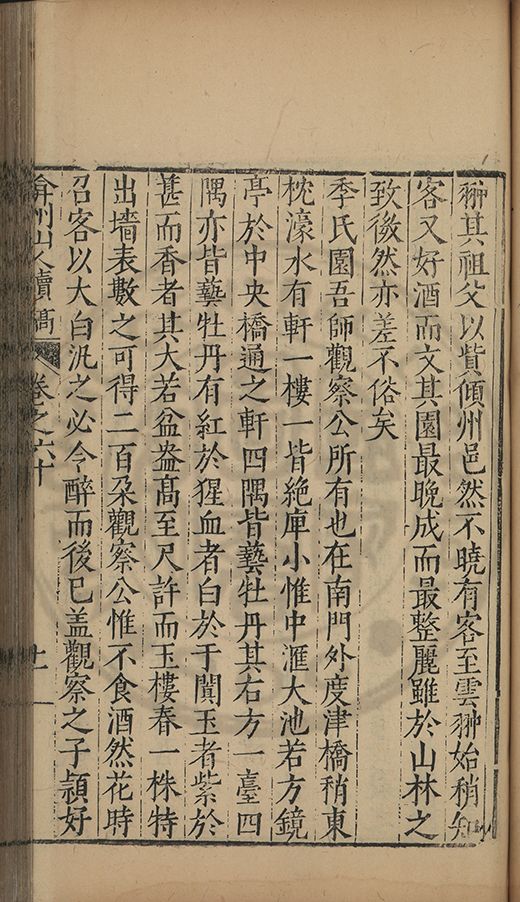 翀其祖父以貲傾州邑然不曉有客至雲翀始稍知
客又好酒而文其園最晚成而最整麗雖於山林之
致缺然亦差不俗矣
季氏園吾師觀察公所有也在南門外度津橋稍東
枕濠水有軒一樓一皆絶庳小惟中滙大池若方鏡
亭於中央橋通之軒四隅皆藝牡丹其右方一臺四
隅亦皆藝牡丹有紅於猩血者白於于闐玉者紫於
葚而香者其大若盆盎髙至尺許而玉樓春一株特
出墻表數之可得二百朶觀察公惟不食酒然花時
召客以大白汎之必令醉而後已盖觀察之子頴好
弇州山人續稿
卷之六十